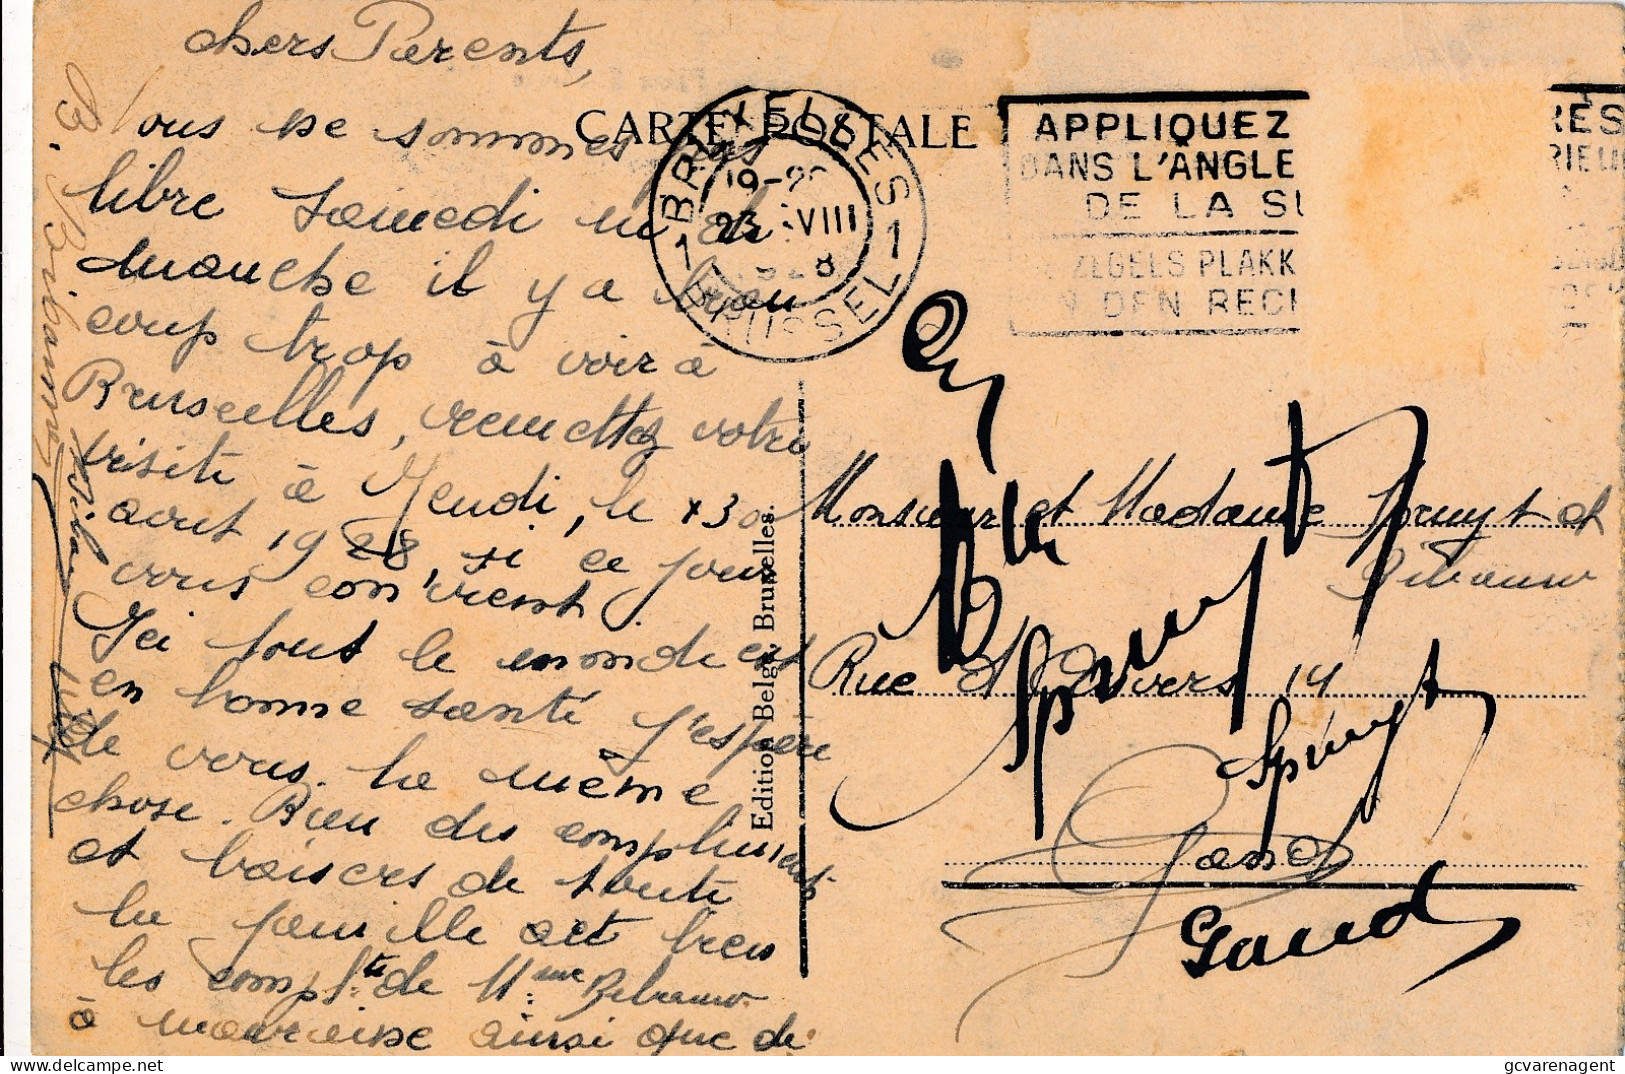 chers Parents,
CARTE POSTALE
ous ne sommes pas
libre Samedi ni di
manche il y a beau
coup trop à voir à
Bruxelles, remettez votre
visite à Jeudi, le 30
aout 1928, si ce jour
vous convient
Ici tout le monde est
en bonne santé j'espère
de vous la même
chose. Bien des compliments
et baisers de toute
la famille et bien
les complts de Mme Bibauw
à ainsi que de
BRUXELLES 1
19-20
23 VIII
1928
1 BRUSSEL 1
APPLIQUEZ
DANS L'ANGLE
DE LA SU
ZEGELS PLAKK
DEN RECH
RES
RIEUR
Edition Belge, Bruxelles.
Monsieur et Madame Spruyt et
Bibauw
Rue d'Anvers 14
Spruyt
Spruyt
Gand
Gand
gcvarenagent